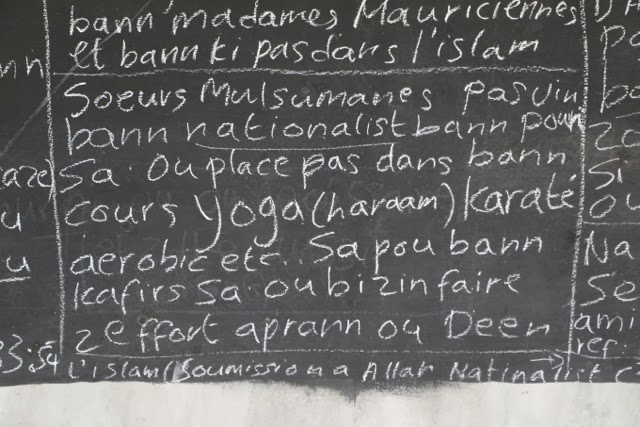 bann madames Mauriciennes
et bann ki pas dans l'islam
Soeurs Mulsumanes pas vin
bann nationalist bann pour
Sa. ou place pas dans bann
cours yoga (haraam) Karaté
aerobic etc.. Sa pou bann
kafirs Sa ou bizin faire
zeffort aprann ou Deen
l'islam (Soumission a Allah Natinalist
nn
aze
u
u
33:54
pa
ba
zo
Si
ou
Na
Se
ami
ref.